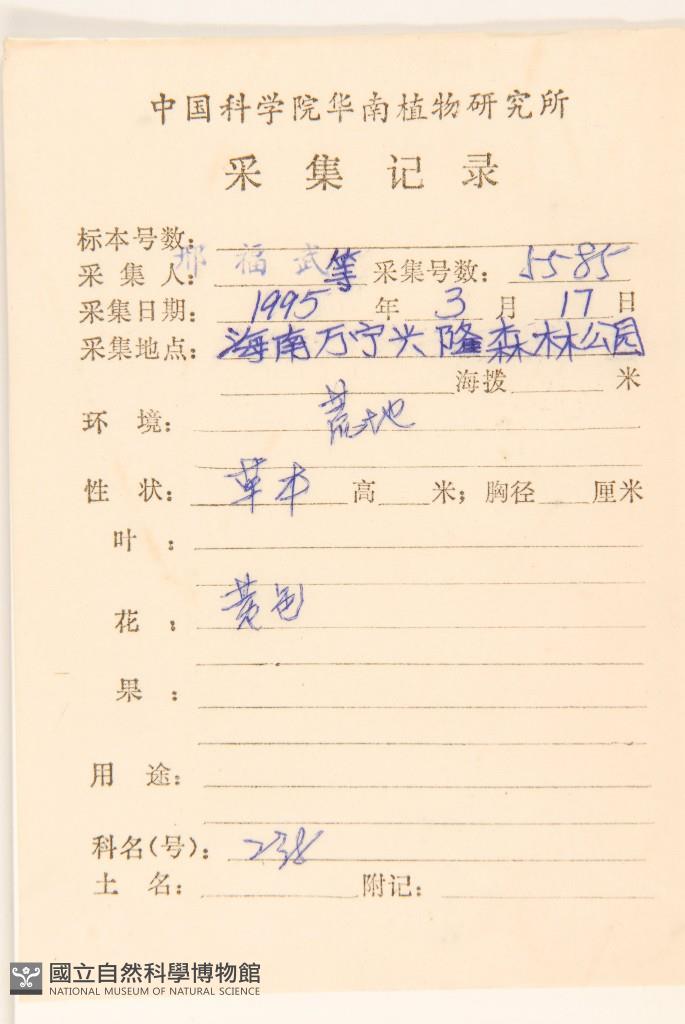 中国科学院华南植物研究所
采集记录
标本号数：
采集人：邢福武等 采集号数：5585
采集日期：1995年3月17日
采集地点：海南万宁兴隆森林公园
海拨 米
环境：荒地
性状：草本 高 米；胸径 厘米
叶：
花：黄色
果：
用途：
科名(号)：238
土名： 附记：
國立自然科學博物館
NATIONAL MUSEUM OF NATURAL SCIENCE